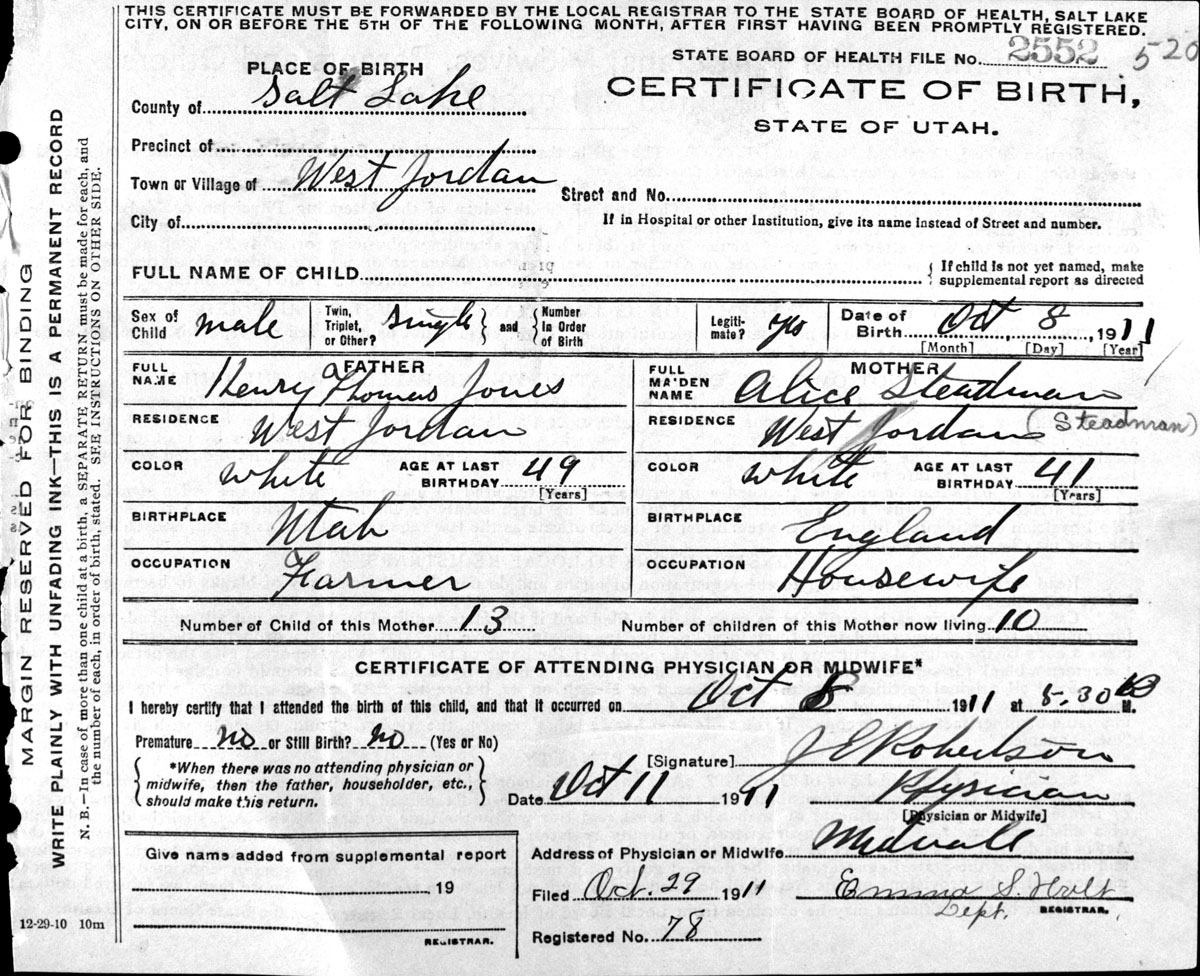 THIS CERTIFICATE MUST BE FORWARDED BY THE LOCAL REGISTRAR TO THE STATE BOARD OF HEALTH, SALT LAKE
CITY, ON OR BEFORE THE 5TH OF THE FOLLOWING MONTH, AFTER FIRST HAVING BEEN PROMPTLY REGISTERED.
STATE BOARD OF HEALTH FILE No. 2552 520
PLACE OF BIRTH
CERTIFICATE OF BIRTH,
County of Salt Lake
STATE OF UTAH.
Precinct of
Town or Village of West Jordan
Street and No.
City of
If in Hospital or other Institution, give its name instead of Street and number.
FULL NAME OF CHILD
{ If child is not yet named, make
supplemental report as directed
Sex of Child male
Twin, Triplet, or Other? single } and { Number in Order of Birth
Legiti-mate? yes
Date of Birth Oct 8, 1911
[Month] [Day] [Year]
FATHER
FULL NAME Henry Thomas Jones
MOTHER
FULL MAIDEN NAME Alice Steadman
(Steadman)
RESIDENCE West Jordan
RESIDENCE West Jordan
COLOR white AGE AT LAST BIRTHDAY 49 [Years]
COLOR white AGE AT LAST BIRTHDAY 41 [Years]
BIRTHPLACE Utah
BIRTHPLACE England
OCCUPATION Farmer
OCCUPATION Housewife
Number of Child of this Mother 13
Number of children of this Mother now living 10
CERTIFICATE OF ATTENDING PHYSICIAN OR MIDWIFE*
I hereby certify that I attended the birth of this child, and that it occurred on Oct 8 1911 at 5.30 M.
Premature no or Still Birth? no (Yes or No)
[Signature] J E Robertson
{ *When there was no attending physician or
midwife, then the father, householder, etc.,
should make this return. }
Date Oct 11 1911 Physician
[Physician or Midwife]
Give name added from supplemental report
Address of Physician or Midwife Midvale
19
Filed Oct. 29 1911 Emma S. Holt
Dept. REGISTRAR.
REGISTRAR.
Registered No. 78
12-29-10 10m
MARGIN RESERVED FOR BINDING
WRITE PLAINLY WITH UNFADING INK—THIS IS A PERMANENT RECORD
N. B.—In case of more than one child at a birth, a SEPARATE RETURN must be made for each, and
the number of each, in order of birth, stated. SEE INSTRUCTIONS ON OTHER SIDE.